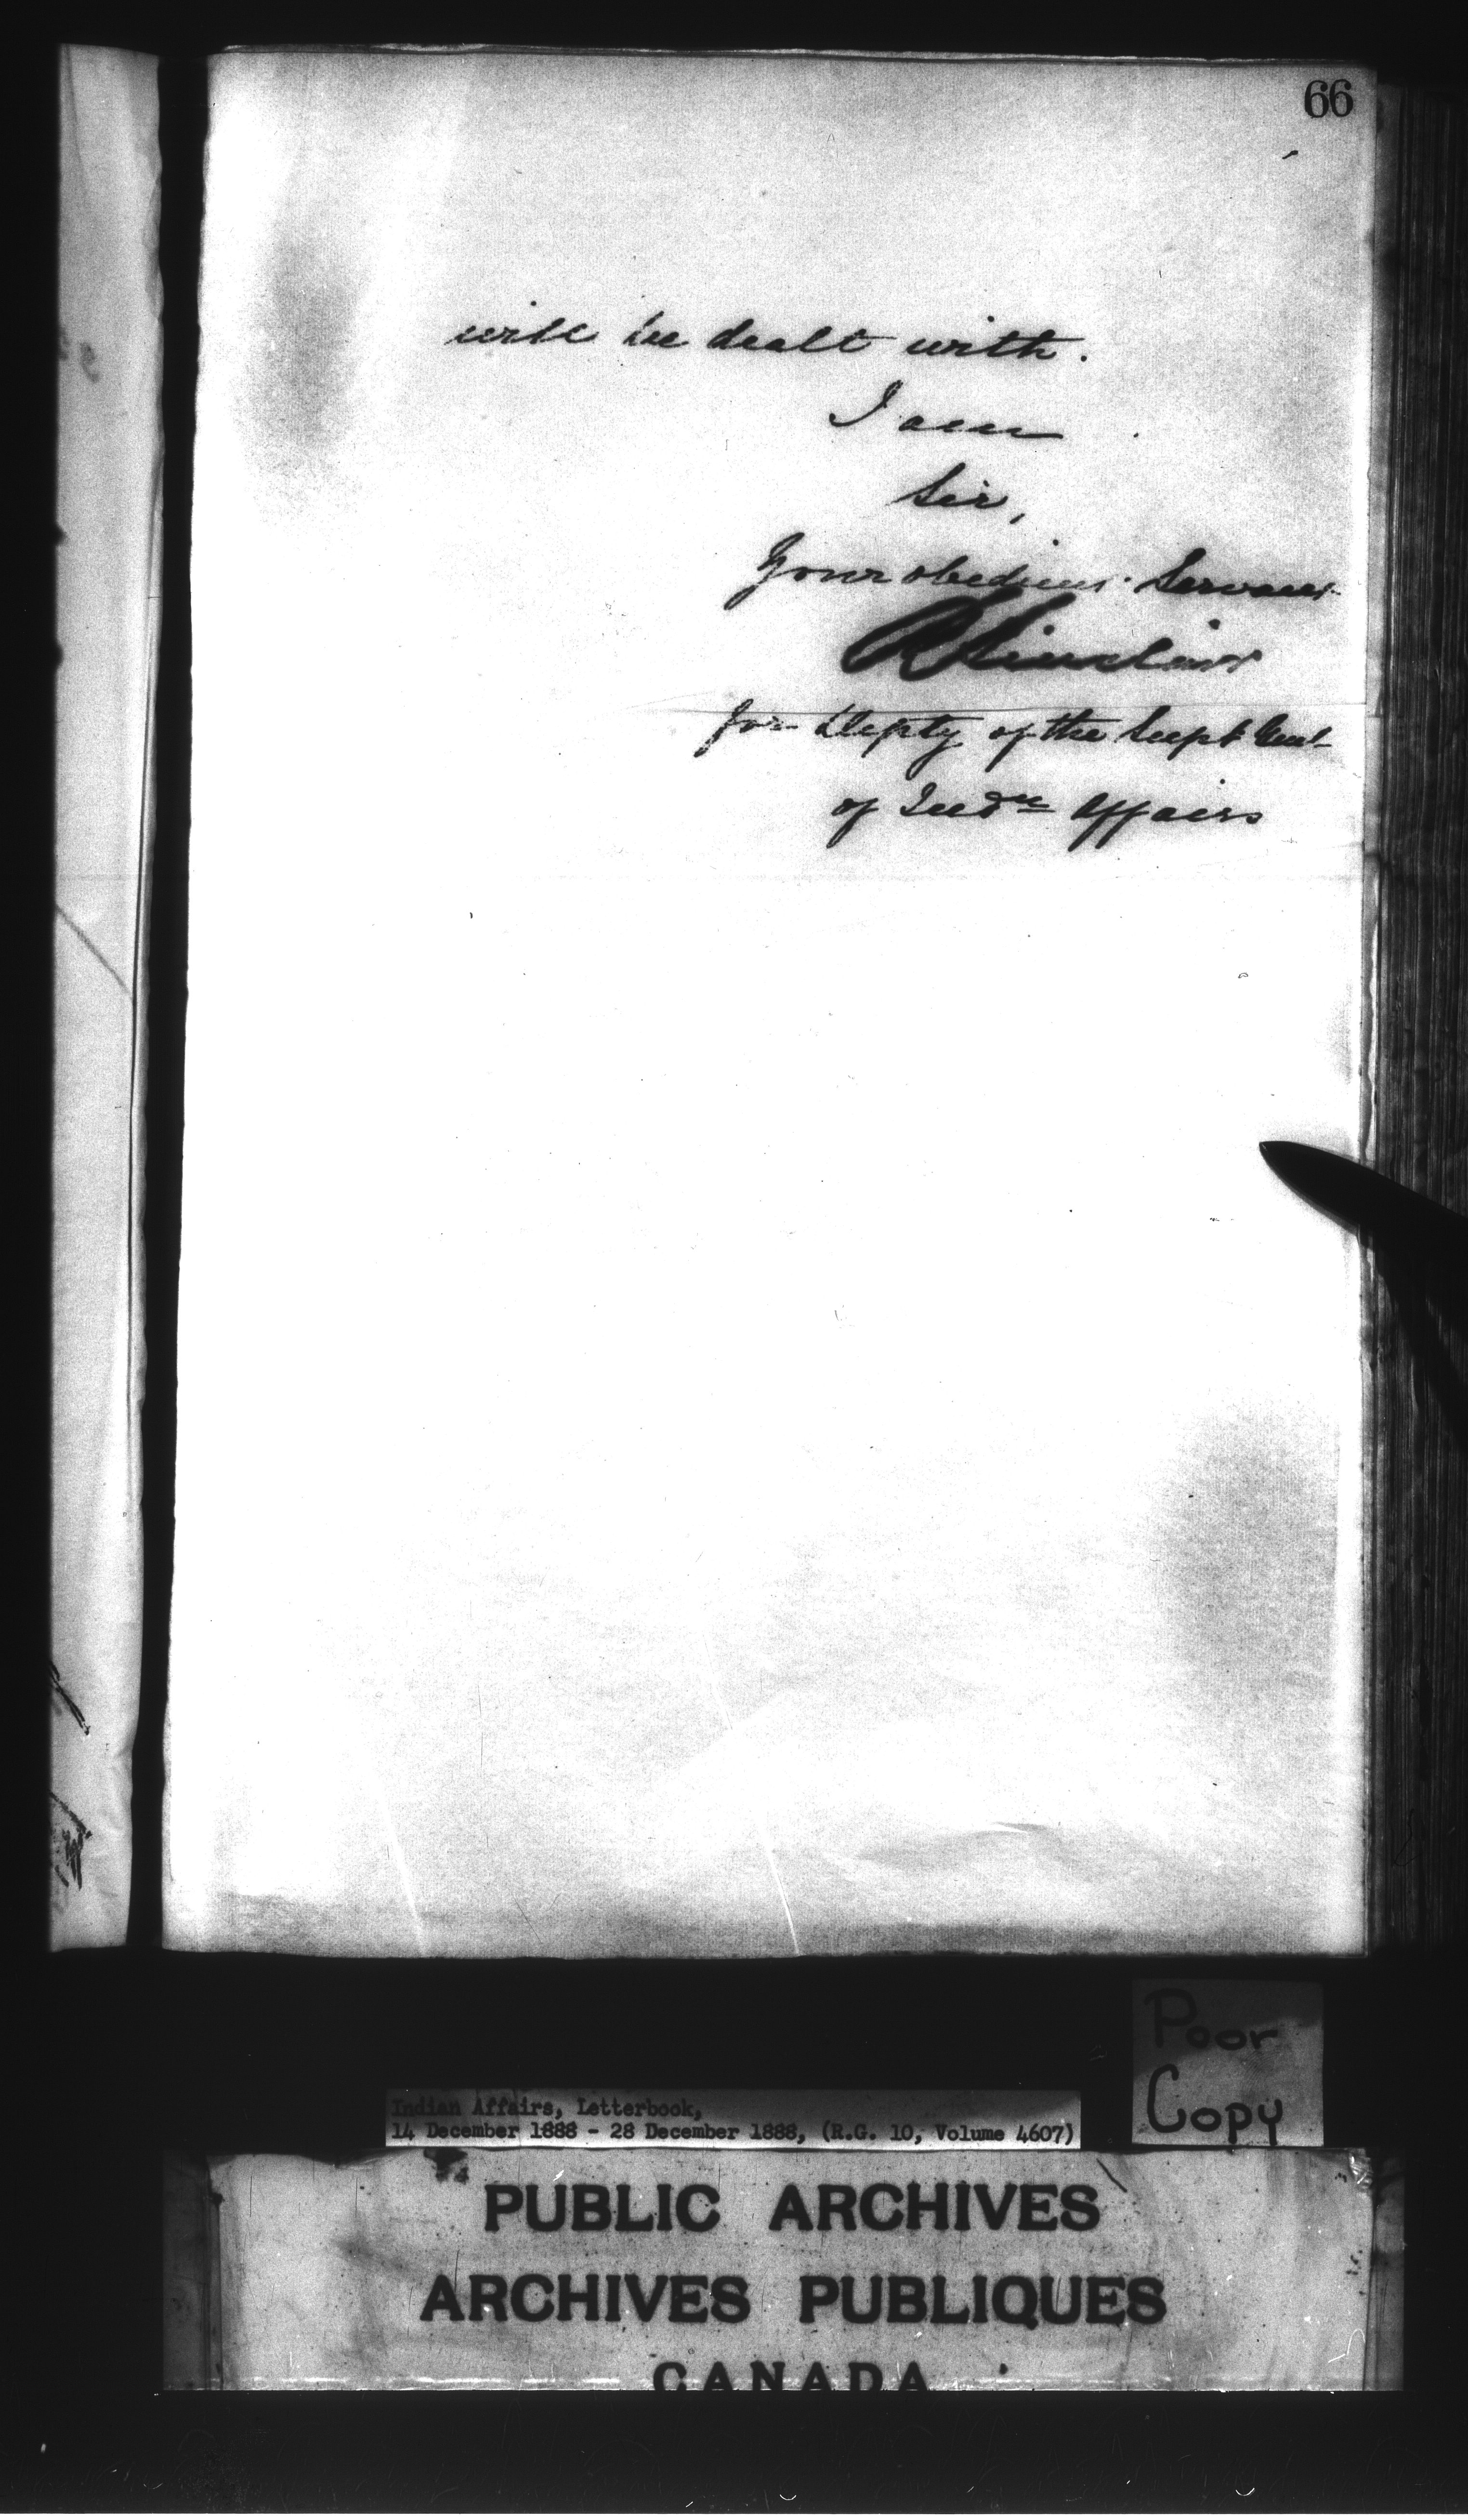 66
will be dealt with.
I am
Sir,
Your obedient Servant
R Sinclair
for Depty of the Supt Genl
of Indn Affairs
Poor
Copy
Indian Affairs, Letterbook,
14 December 1888 - 28 December 1888, (R.G. 10, Volume 4607)
PUBLIC ARCHIVES
ARCHIVES PUBLIQUES
CANADA